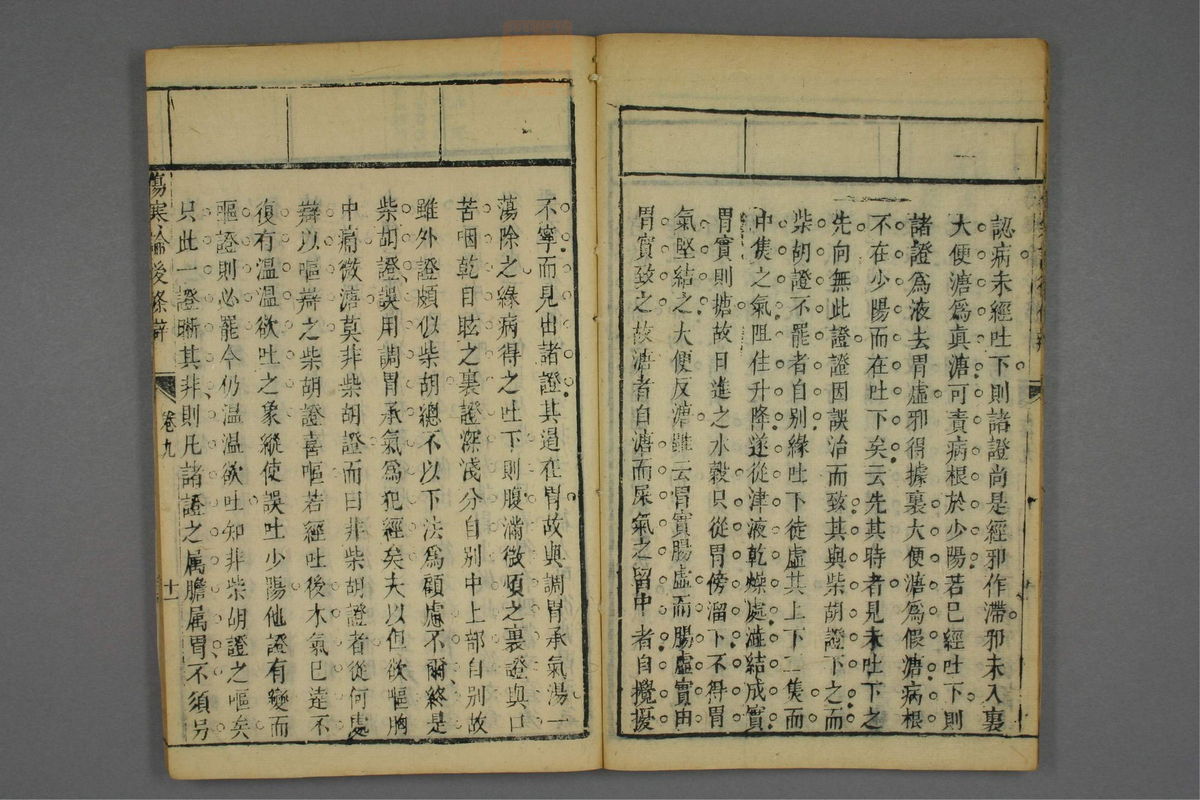 認病未經吐下則諸證尚是經邪作滯邪未入裏
大便溏爲真溏可責病根於少陽若已經吐下則
諸證爲液去胃虛邪得據裏大便溏爲假溏病根
不在少陽而在吐下矣云先其時者見未吐下之
先向無此證證因誤治而致其與柴胡證下之而
柴胡證不罷者自别緣吐下徒虛其上下二焦而
中焦之氣阻住升降遂從津液乾燥處澁結成實
胃實則搪故日進之水穀只從胃傍溜下不得胃
氣堅結之大便反溏雖云胃實腸虛而腸虛實由
胃實致之故溏者自溏而屎氣之留中者自攪擾
不寧而見出諸證其過在胃故與調胃承氣湯一
蕩除之緣病得之吐下則腹滿微煩之裏證與口
苦咽乾目眩之裏證深淺分自别中上部自别故
雖外證頗似柴胡總不以下法爲顧慮不爾終是
柴胡證誤用調胃承氣爲犯經矣夫以但欲嘔胸
中痛微溏莫非柴胡證而曰非柴胡證者從何處
辯以嘔辯之柴胡證喜嘔若經吐後木氣已達不
復有温温欲吐之象縱使誤吐少陽他證有變而
嘔證則必罷今仍温温欲吐知非柴胡證之嘔矣
只此一證晰其非則凡諸證之属膽属胃不須另
傷寒論後條辯
卷九
十一